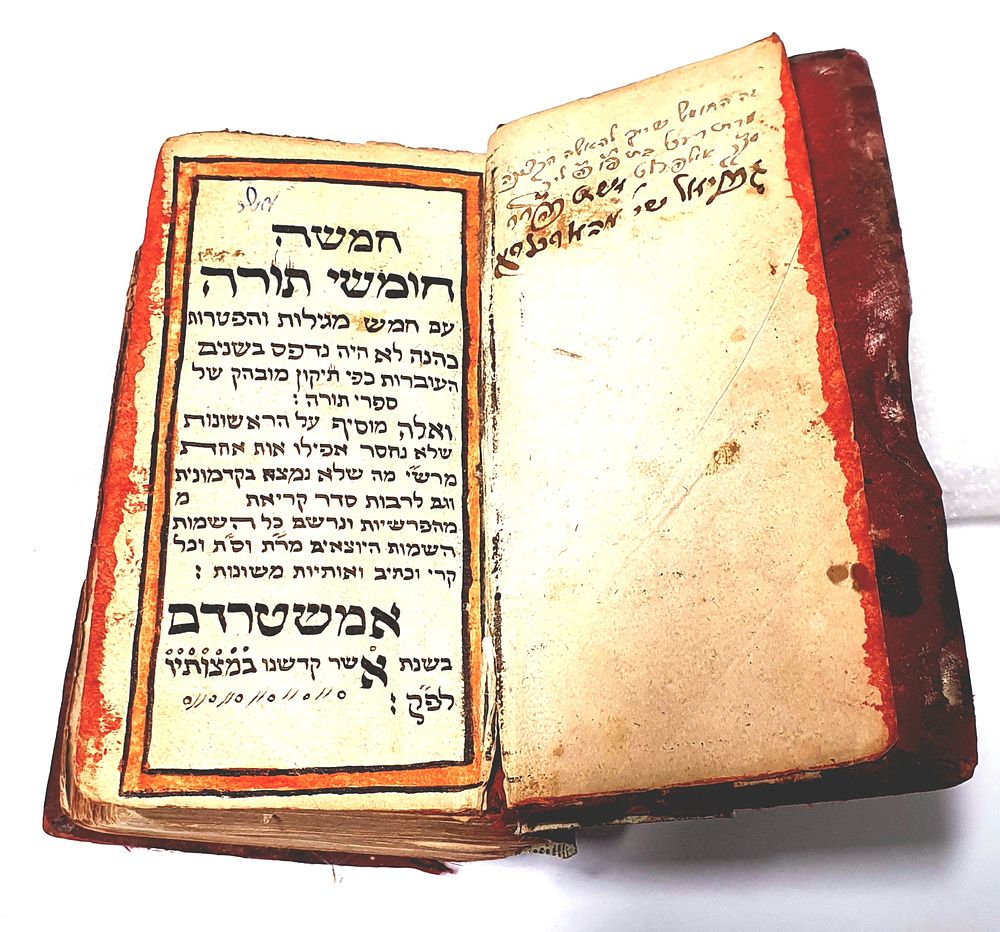 זה החומש שייך להאשה הקצינה
מרת
חמשה
חומשי תורה
עם חמש מגילות והפטרות
כהנה לא היה נדפס בשנים
העוברות כפי תיקון מובהק של
ספרי תורה :
ואלה מוסיף על הראשונות
שלא נחסר אפילו אות אחת
מרש״י מה שלא נמצא בקדמונית
וגם לרבות סדר קריאת מ
מהפרשיות ונרשם כל השמות
השמות היוצאים מר״ת וס״ת וכל
קרי וכתיב ואותיות משונות :
אמשטרדם
בשנת אשר קדשנו במצותיו
לפ״ק :